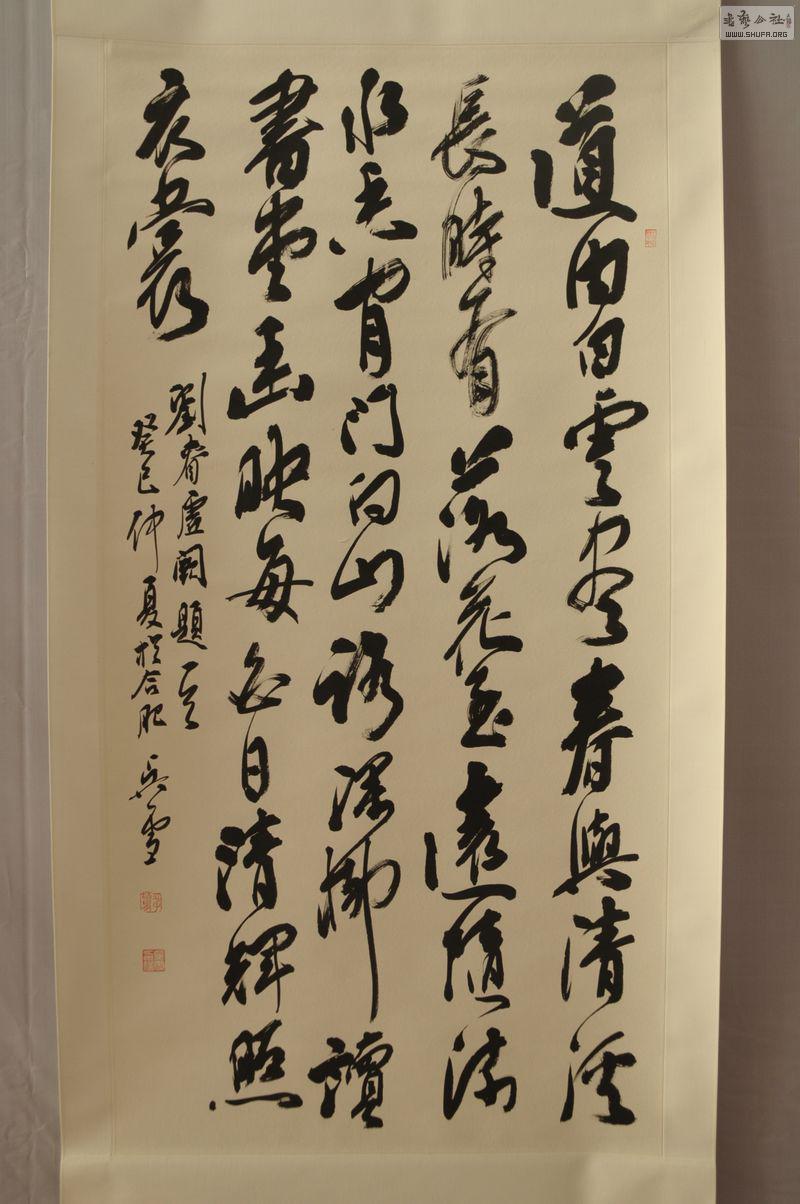 道由白雲盡春與清溪
長時有落花至遠隨流
水香閒門向山路深柳讀
書堂幽映每白日清輝照
衣裳
劉昚虛闕題一首
癸巳仲夏於合肥 吳雪
書藝公社
WWW.SHUFA.ORG